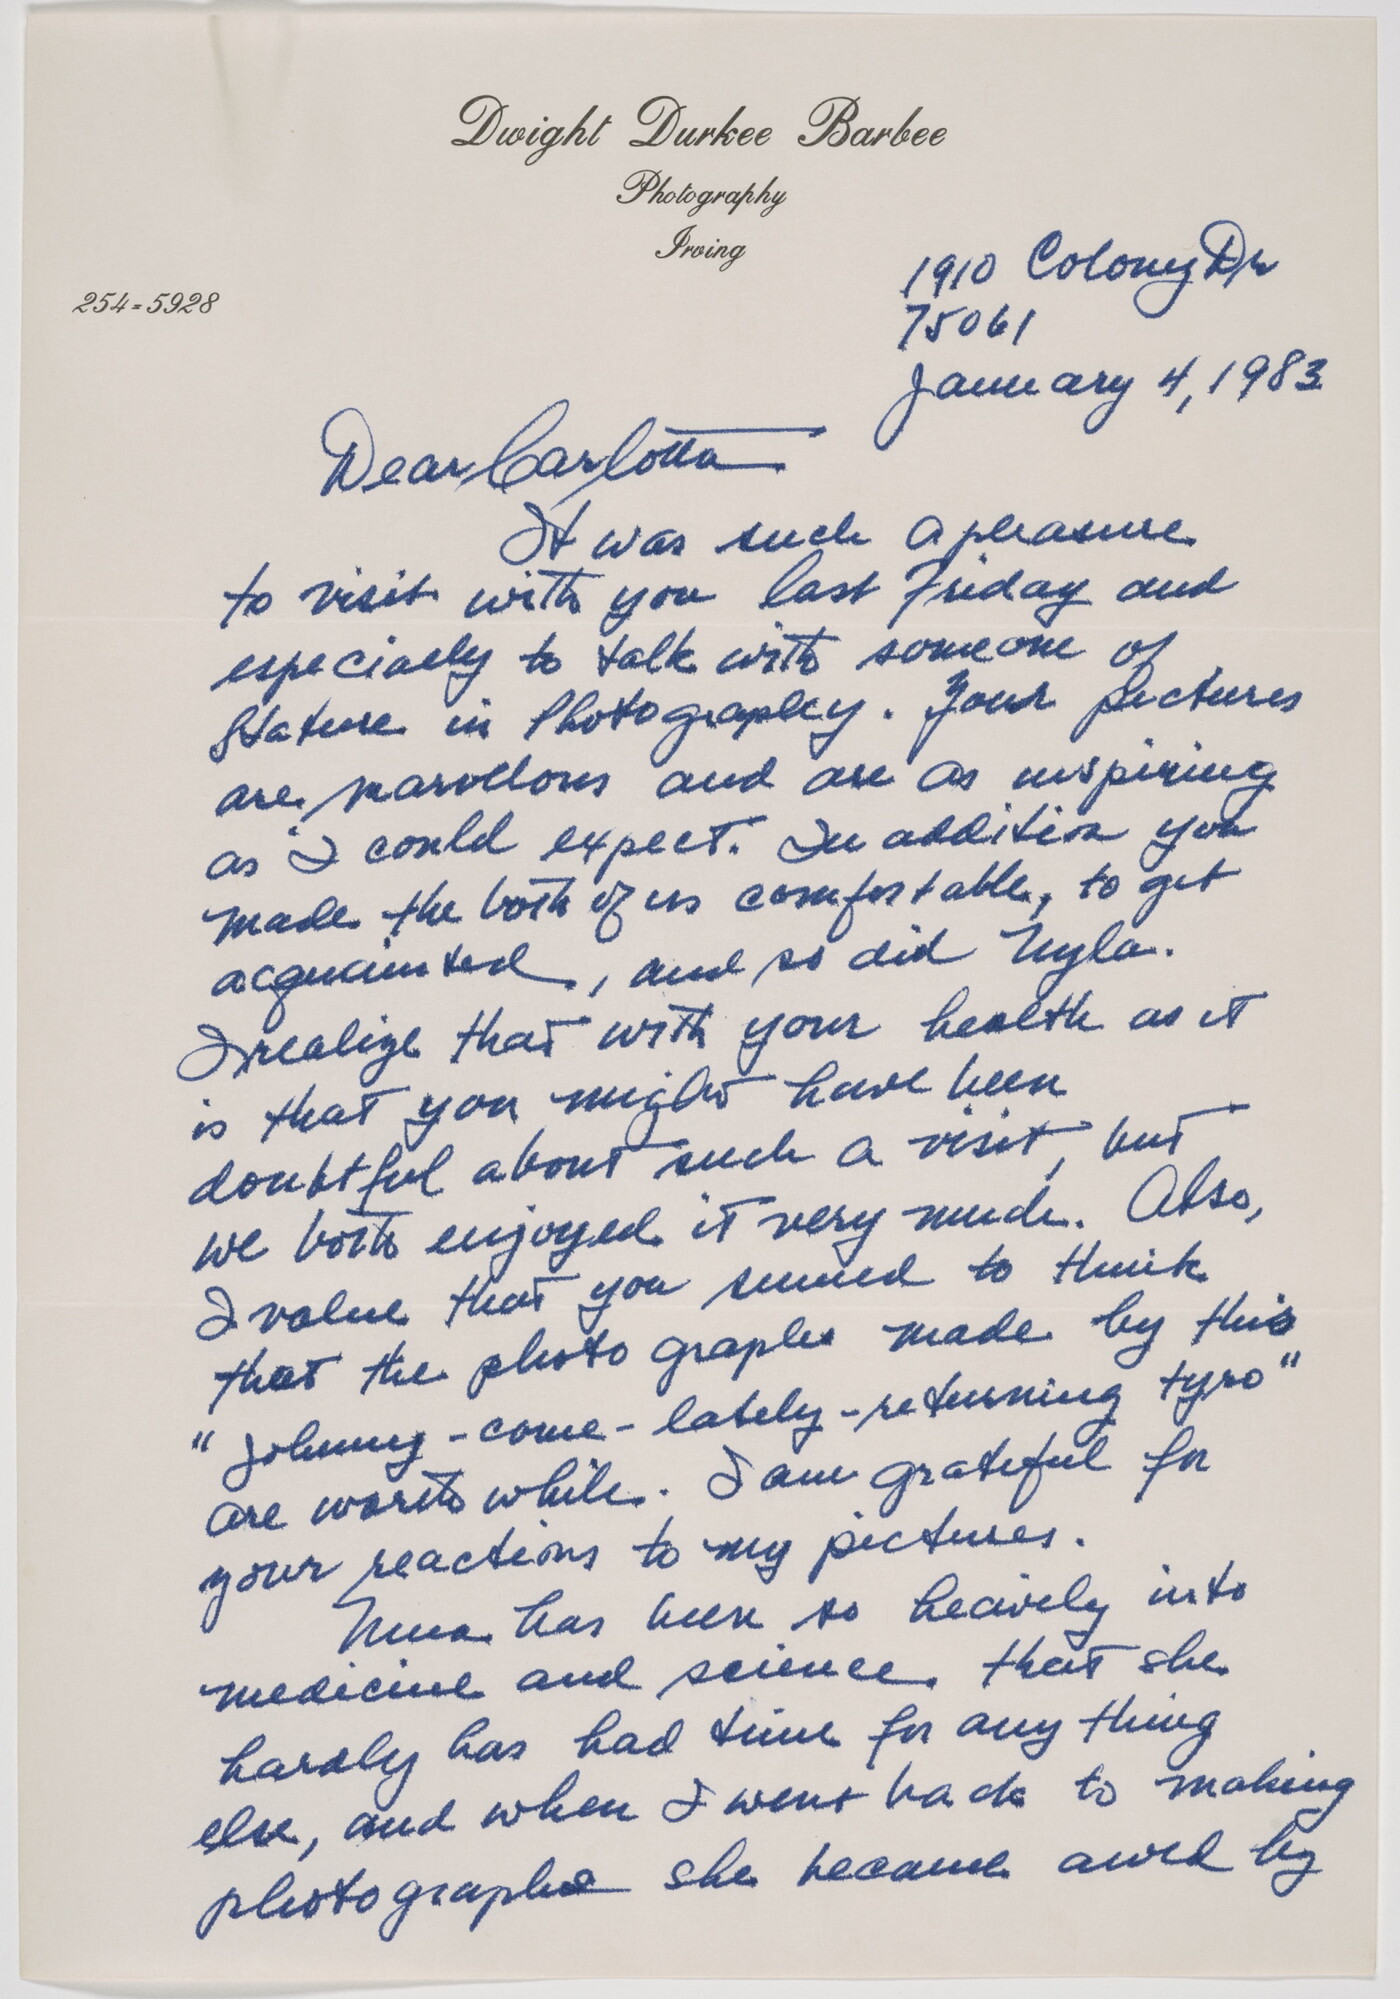 Dwight Durkee Barbee
Photography
Irving
254-5928
1910 Colony Dr
75061
January 4, 1983
Dear Carlotta
It was such a pleasure
to visit with you last Friday and
especially to talk with someone of
stature in Photography. Your pictures
are marvellous and are as inspiring
as I could expect. In addition you
made the both of us comfortable, to get
acquainted, and so did Nyla.
I realize that with your health as it
is that you might have been
doubtful about such a visit, but
we both enjoyed it very much. Also,
I value that you seemed to think
that the photographs made by this
"Johnny-come-lately-returning tyro"
are worth while. I am grateful for
your reactions to my pictures.
has been so heavily into
medicine and science that she
hardly has had time for any thing
else, and when I went back to making
photographs she became awed by